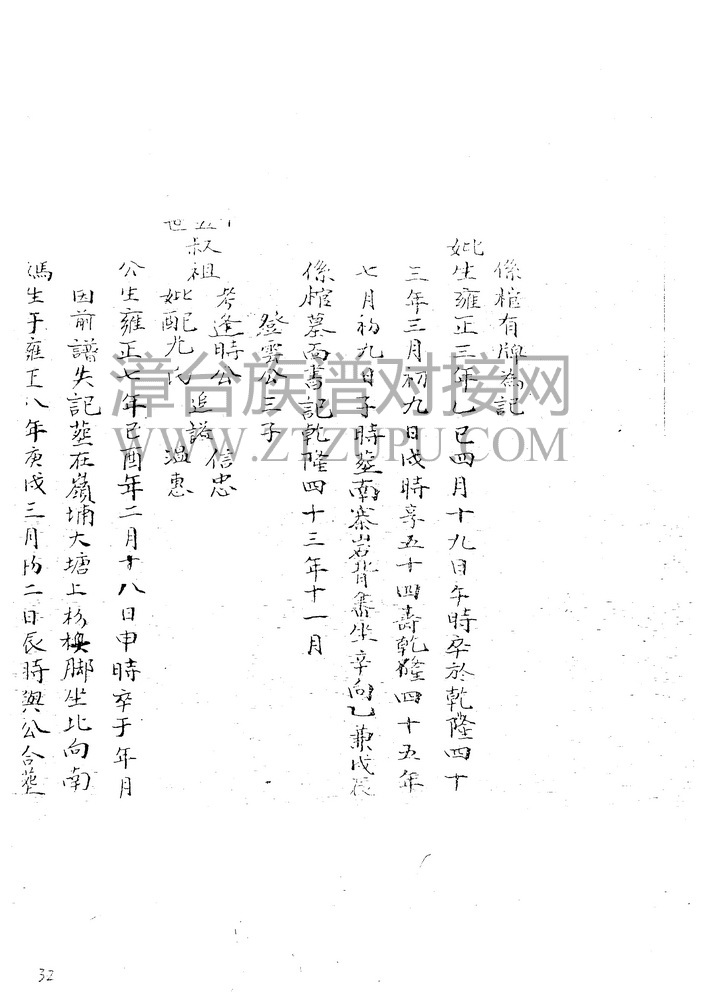 係棺有牌為記
妣生雍正三年乙巳四月十九日午時卒於乾隆四十
三年三月初九日戌時享五十四壽乾隆四十五年
七月初九日子時塟南寨岩背畬坐辛向乙兼戌辰
係棺墓面書記乾隆四十三年十一月
登雲公三子
世
叔祖
考逢時公 追諡 信忠
妣配尤氏 温惠
公生雍正七年己酉年二月十八日申時卒于年月
因前譜失記塟在嶺埔大塘上杉模脚坐北向南
媽生于雍正八年庚戌三月初二日辰時與公合塟
漳台族谱对接网
WWW.ZTZUPU.COM
32